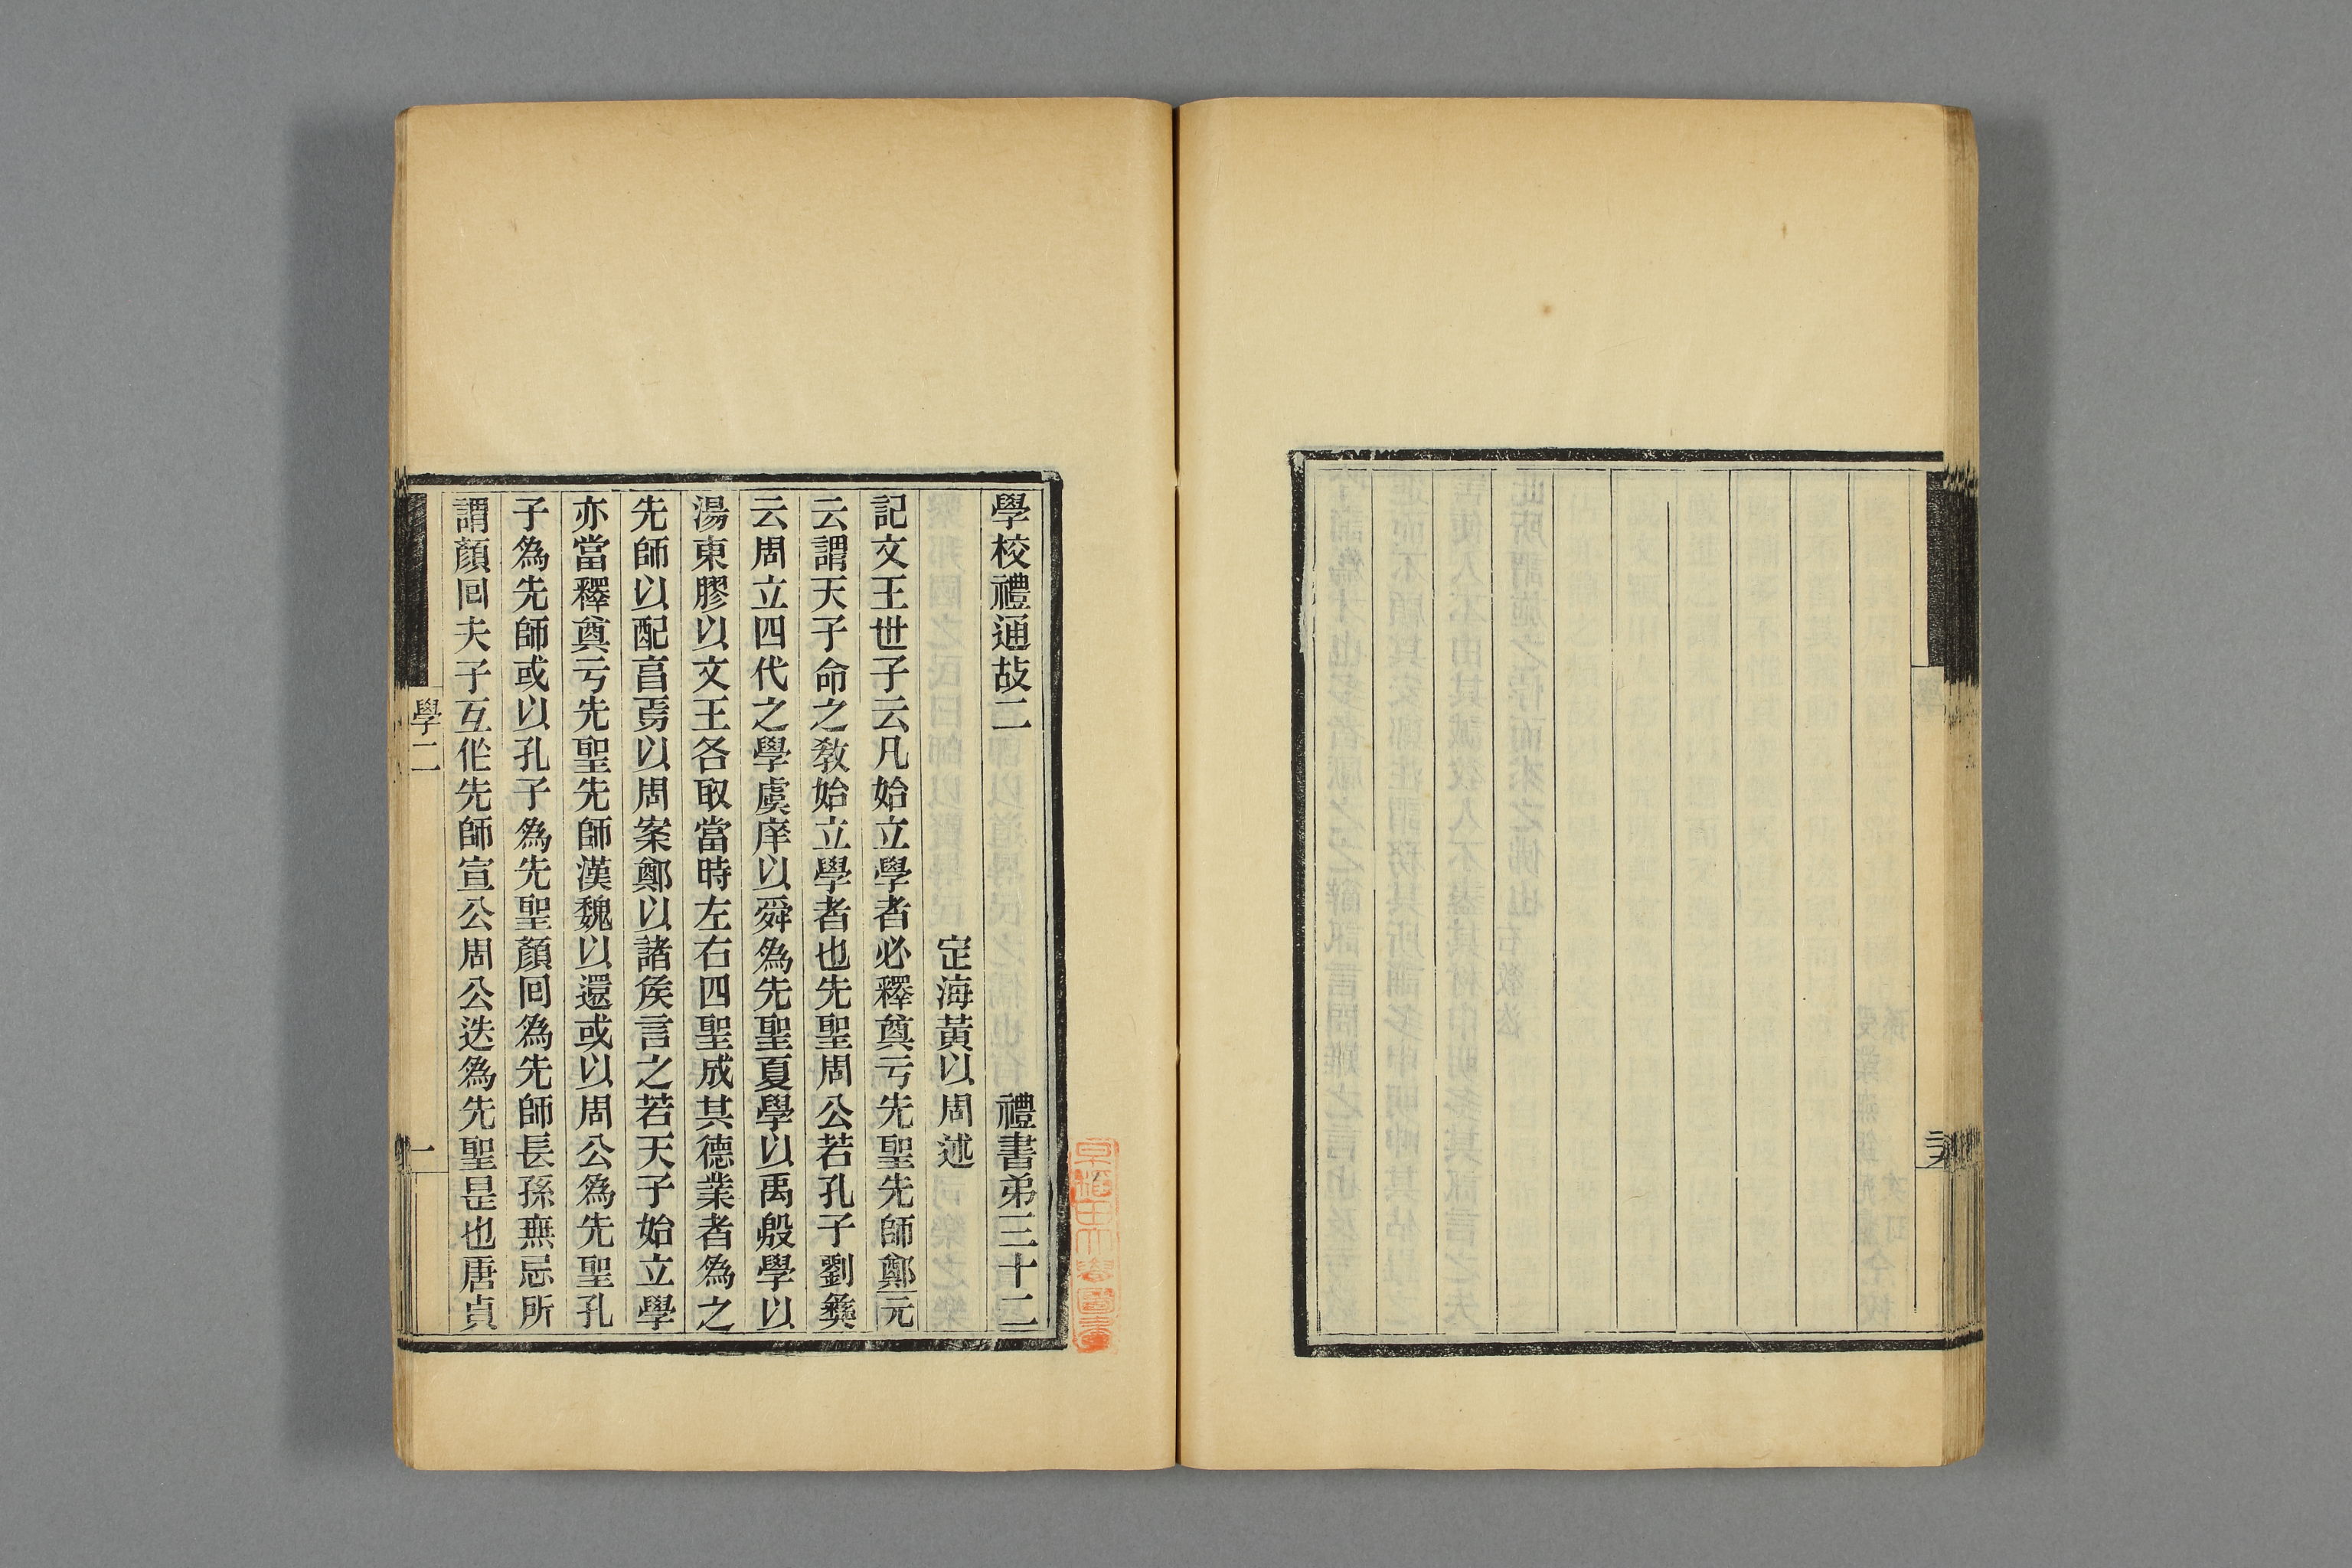 學校禮通故二 禮書弟三十二
定海黃以周述
記文王世子云凡始立學者必釋奠亏先聖先師鄭元
云謂天子命之敎始立學者也先聖周公若孔子劉彝
云周立四代之學虞庠以舜爲先聖夏學以禹殷學以
湯東膠以文王各取當時左右四聖成其德業者爲之
先師以配亯焉以周案鄭以諸矦言之若天子始立學
亦當釋奠亏先聖先師漢魏以還或以周公爲先聖孔
子爲先師或以孔子爲先聖顏回爲先師長孫無忌所
謂顏回夫子互作先師宣公周公迭爲先聖是也唐貞
學二
一